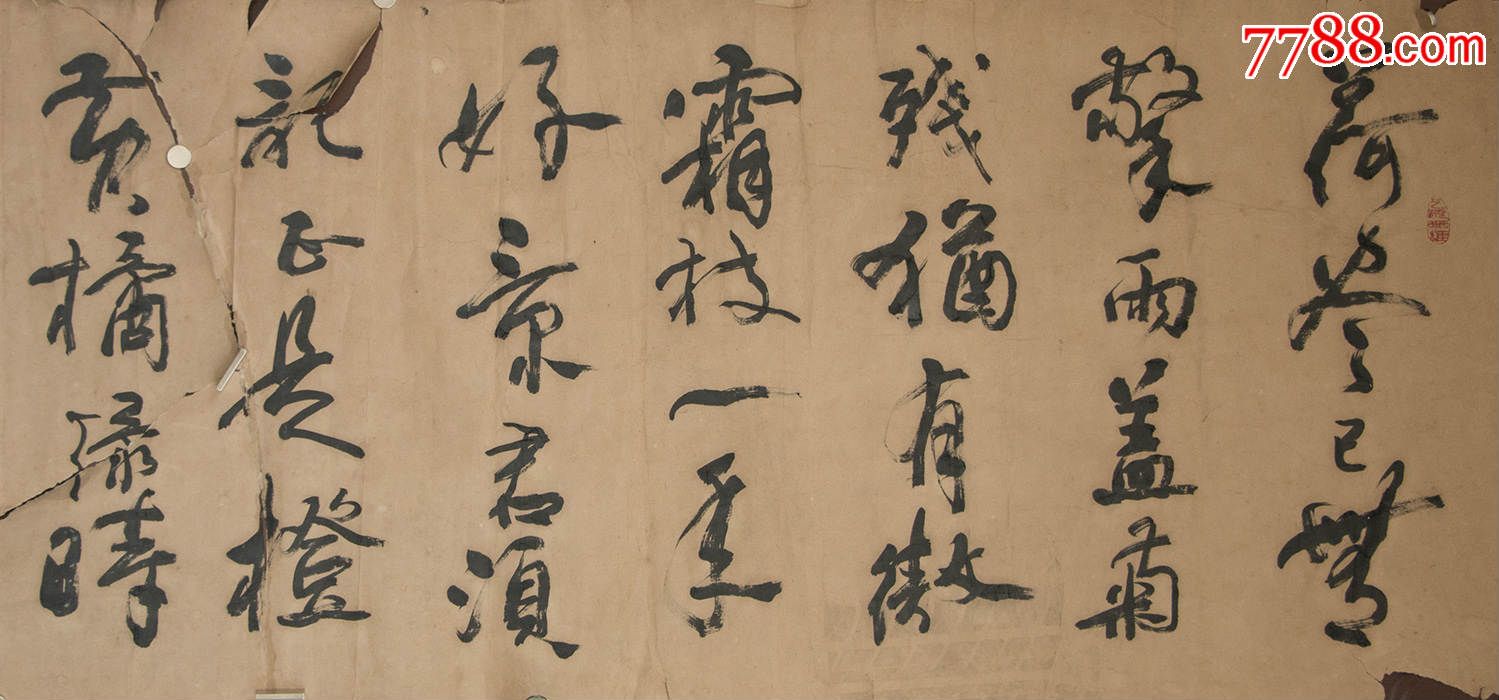 7788.com
荷尽已無
擎雨盖菊
残猶有傲
霜枝一年
好景君須
記正是橙
黄橘緑時